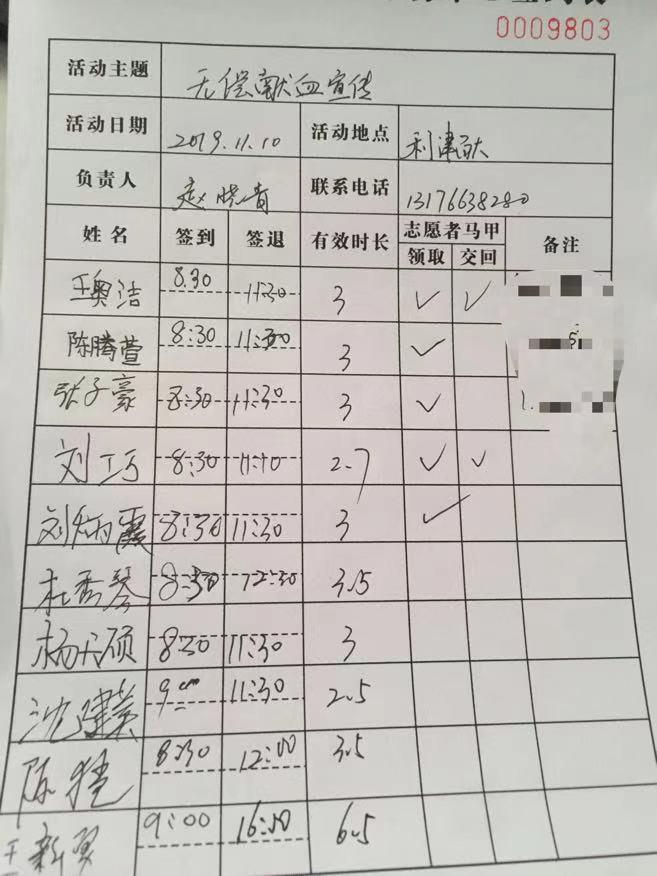 0009803
活动主题 无偿献血宣传
活动日期 2019.11.10 活动地点 利津
负责人 赵晓青 联系电话 13176638280
姓名 签到 签退 有效时长 志愿者马甲 备注
领取 交回
王奥洁 8.30 11:30 3 ✓ ✓
陈腾萱 8:30 11:30 3 ✓
张子豪 8:30 11:30 3 ✓
刘巧 8:30 11:10 2.7 ✓ ✓
刘炳霞 8:30 11:30 3 ✓
杜秀琴 8:30 12:30 3.5
杨硕 8:30 11:30 3
沈建 9 11:30 2.5
陈 8:30 12:00 3.5
王新 9:00 16:00 6.5